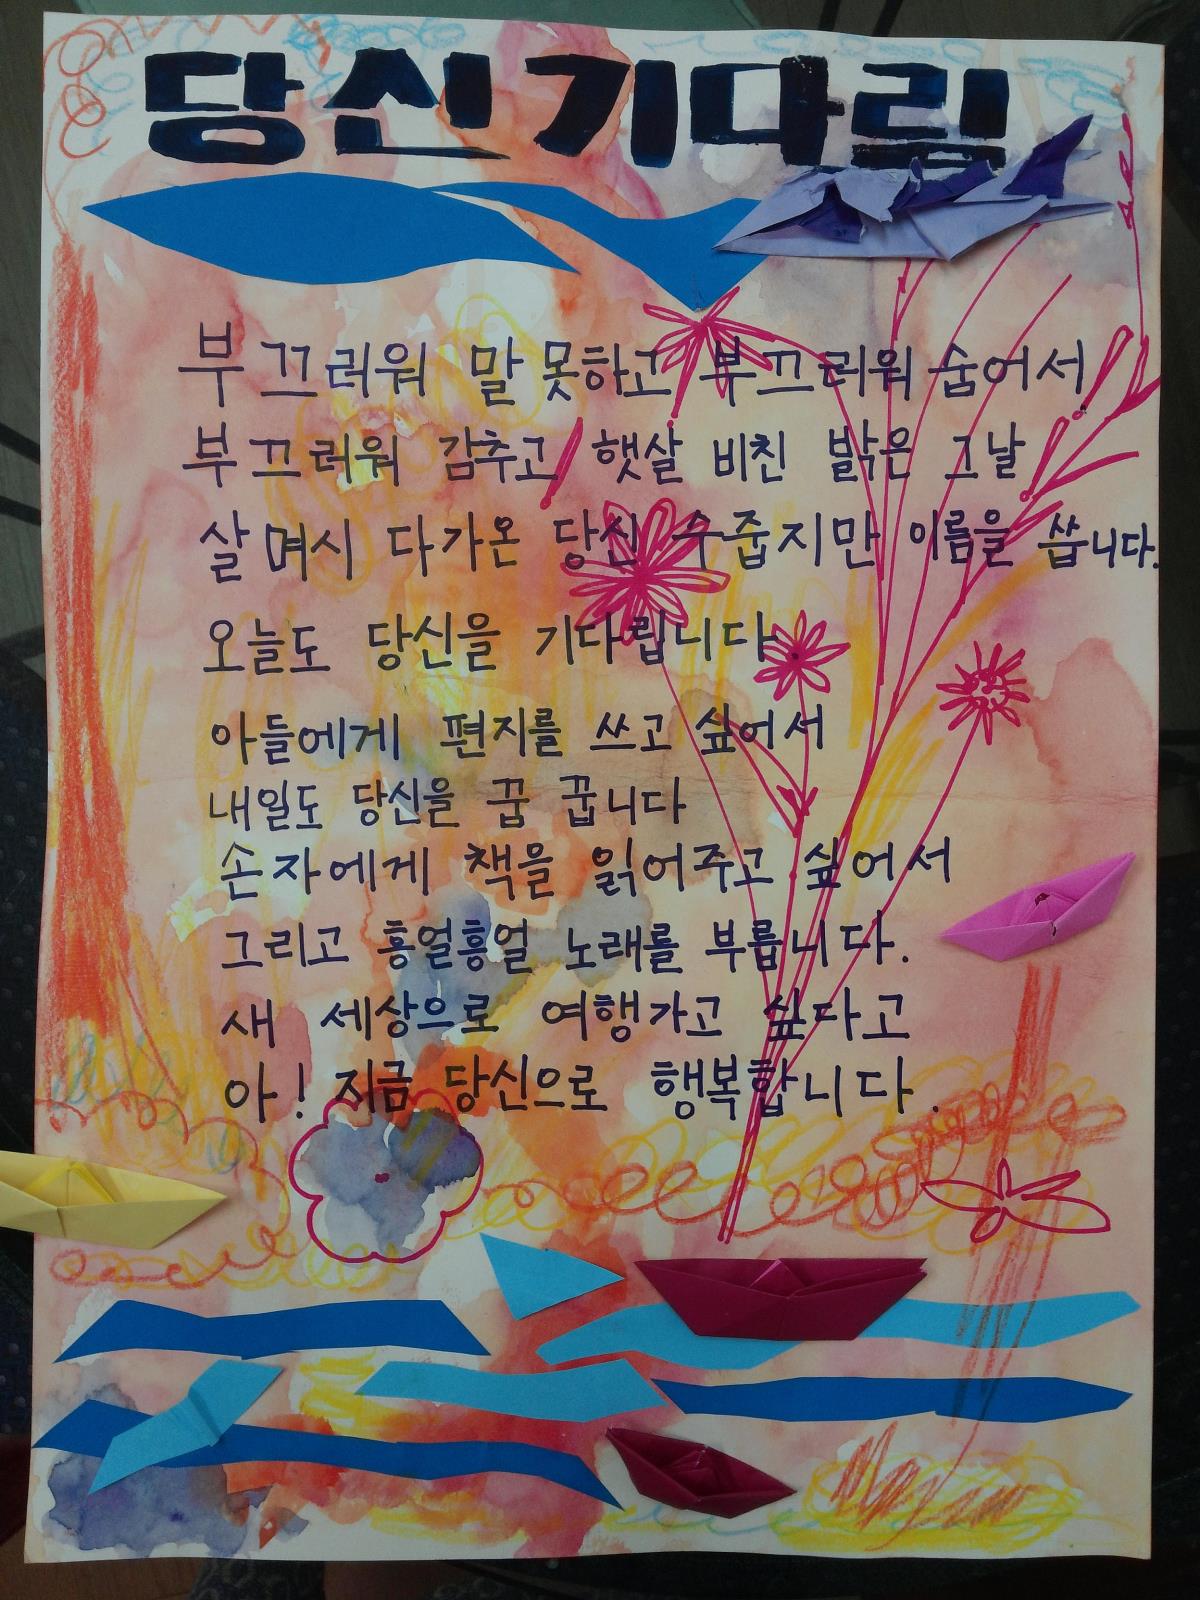 당신 기다림
부끄러워 말 못하고 부끄러워 숨어서
부끄러워 감추고 햇살 비친 밝은 그날
살며시 다가온 당신 수줍지만 이름을 씁니다.
오늘도 당신을 기다립니다
아들에게 편지를 쓰고 싶어서
내일도 당신을 꿈 꿉니다
손자에게 책을 읽어주고 싶어서
그리고 흥얼흥얼 노래를 부릅니다.
새 세상으로 여행가고 싶다고
아! 지금 당신으로 행복합니다.